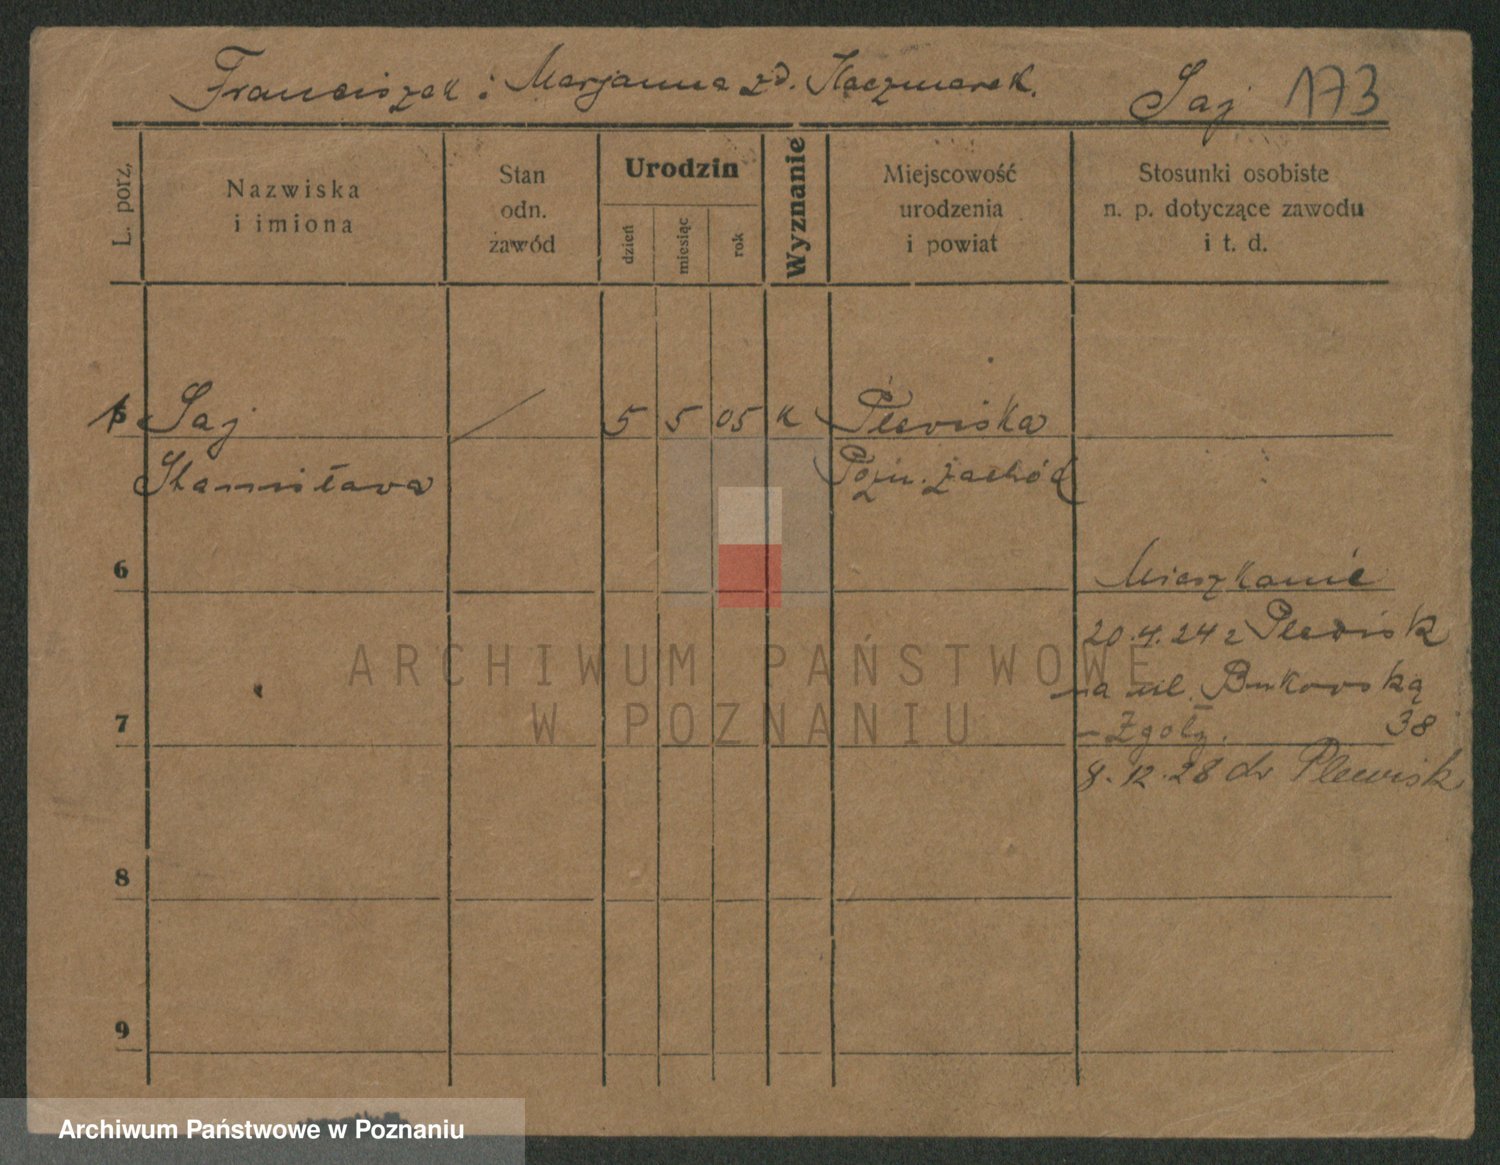 Franciszek i Marjanna zd. Kaczmarek. Saj 173
L. porz.
Nazwiska
i imiona
Stan
odn.
zawód
Urodzin
dzień
miesiąc
rok
Wyznanie
Miejscowość
urodzenia
i powiat
Stosunki osobiste
n. p. dotyczące zawodu
i t. d.
Saj 5 5 05 k Plewiska
Stanisława Pozn. zachód
6
Mieszkanie
20.4.24 z Plewisk
na ul. Bukowską
7
- Zgołz. 38
8.12.28 do Plewisk
8
9
ARCHIWUM PAŃSTWOWE
W POZNANIU
Archiwum Państwowe w Poznaniu